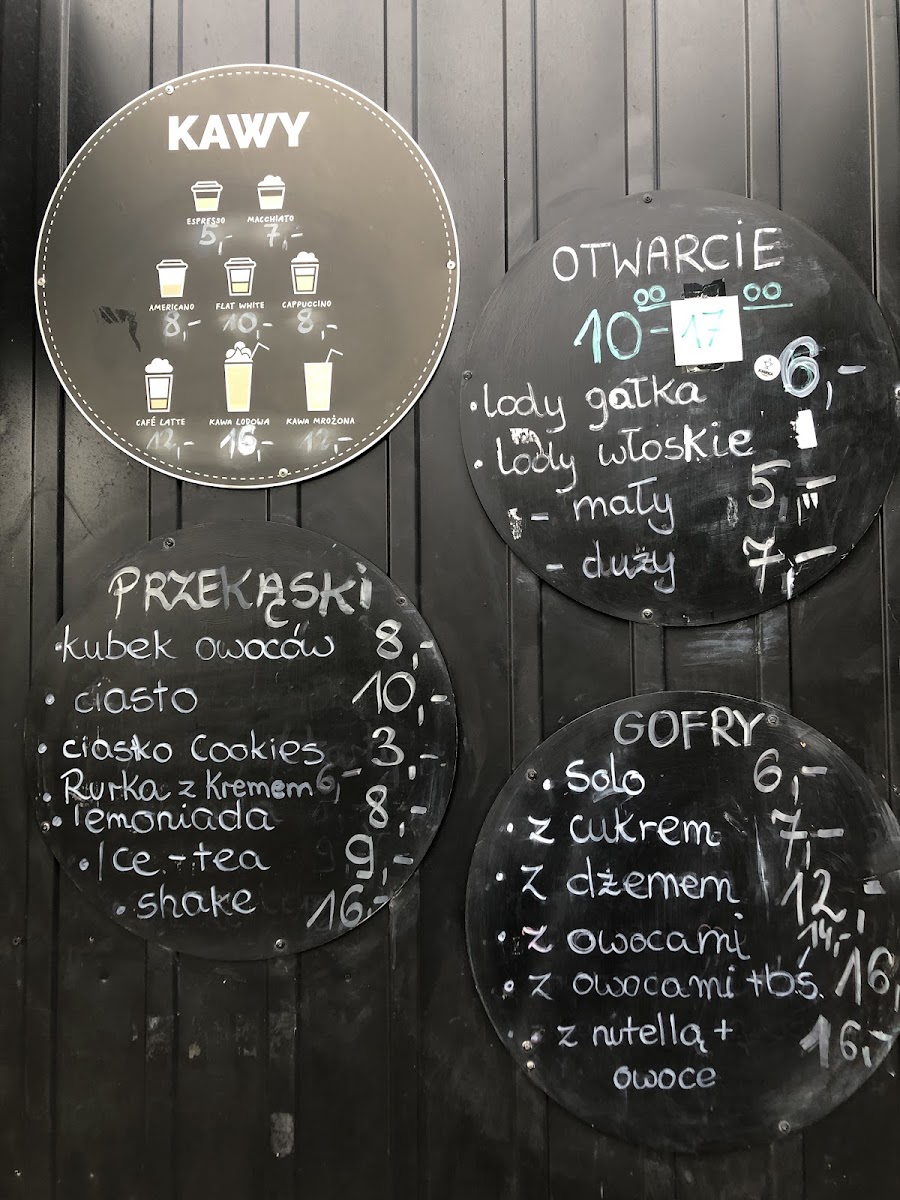 KAWY
ESPRESSO MACCHIATO
5,- 7,-
AMERICANO FLAT WHITE CAPPUCCINO
8,- 10,- 8,-
CAFÉ LATTE KAWA LODOWA KAWA MROŻONA
12,- 16,- 12,-
OTWARCIE
10 00 - 17 00
• lody gałka 6,-
• lody włoskie
- mały 5,-
- duży 7,-
PRZEKĄSKI
• kubek owoców 8,-
• ciasto 10,-
• ciastko Cookies 3,-
• Rurka z kremem 6,-
• lemoniada 8,-
• Ice-tea 9,-
• shake 16,-
GOFRY
• Solo 6,-
• z cukrem 7,-
• z dżemem 12,-
• z owocami 14,-
• z owocami +bś. 16,
• z nutellą + 16,-
owoce